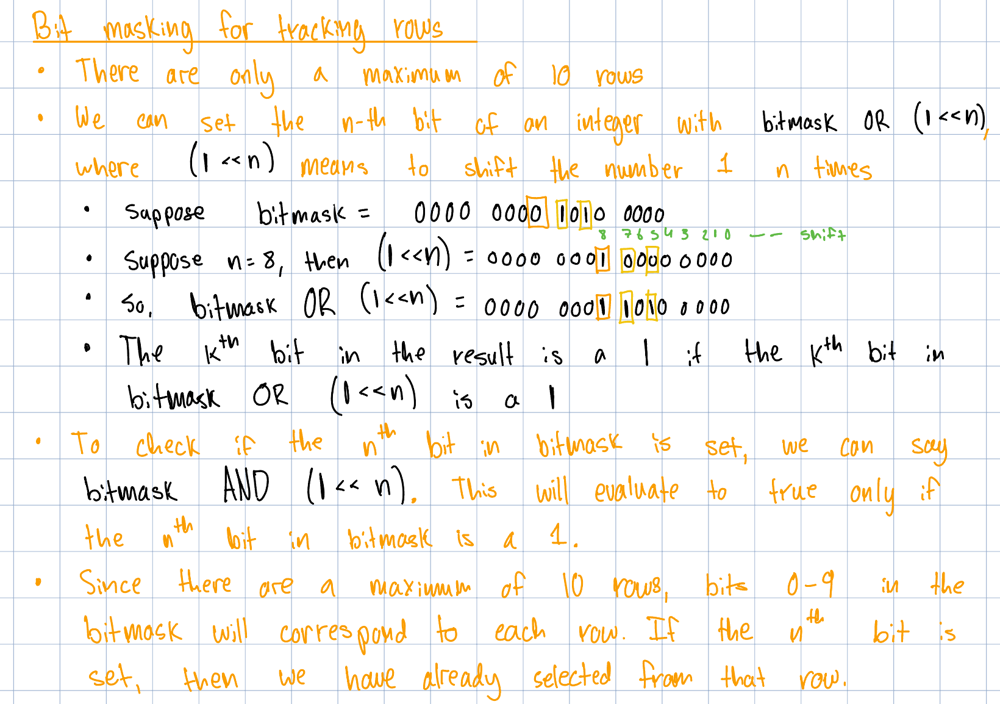 Bit masking for tracking rows
• There are only a maximum of 10 rows
• We can set the n-th bit of an integer with bitmask OR (1<<n),
where (1<<n) means to shift the number 1 n times
• Suppose bitmask = 0000 0000 1010 0000
8 7 6 5 4 3 2 1 0 -- shift
• Suppose n=8, then (1<<n) = 0000 0001 0000 0000
• So, bitmask OR (1<<n) = 0000 0001 1010 0000
• The kth bit in the result is a 1 if the kth bit in
bitmask OR (1<<n) is a 1
• To check if the nth bit in bitmask is set, we can say
bitmask AND (1<<n). This will evaluate to true only if
the nth bit in bitmask is a 1.
• Since there are a maximum of 10 rows, bits 0-9 in the
bitmask will correspond to each row. If the nth bit is
set, then we have already selected from that row.